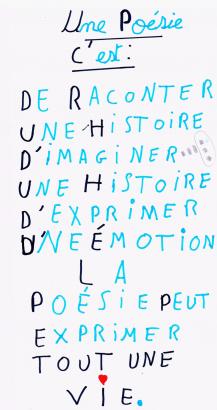 Une Poésie
c'est:
DE RACONTER
UNE HiSTOiRE
D'iMAGiNER
UNE HiSTOiRE
D'EXPRiMER
D'NE ÉMOTiON
LA
POÉSiE PEUT
EXPRiMER
TOUT UNE
ViE.